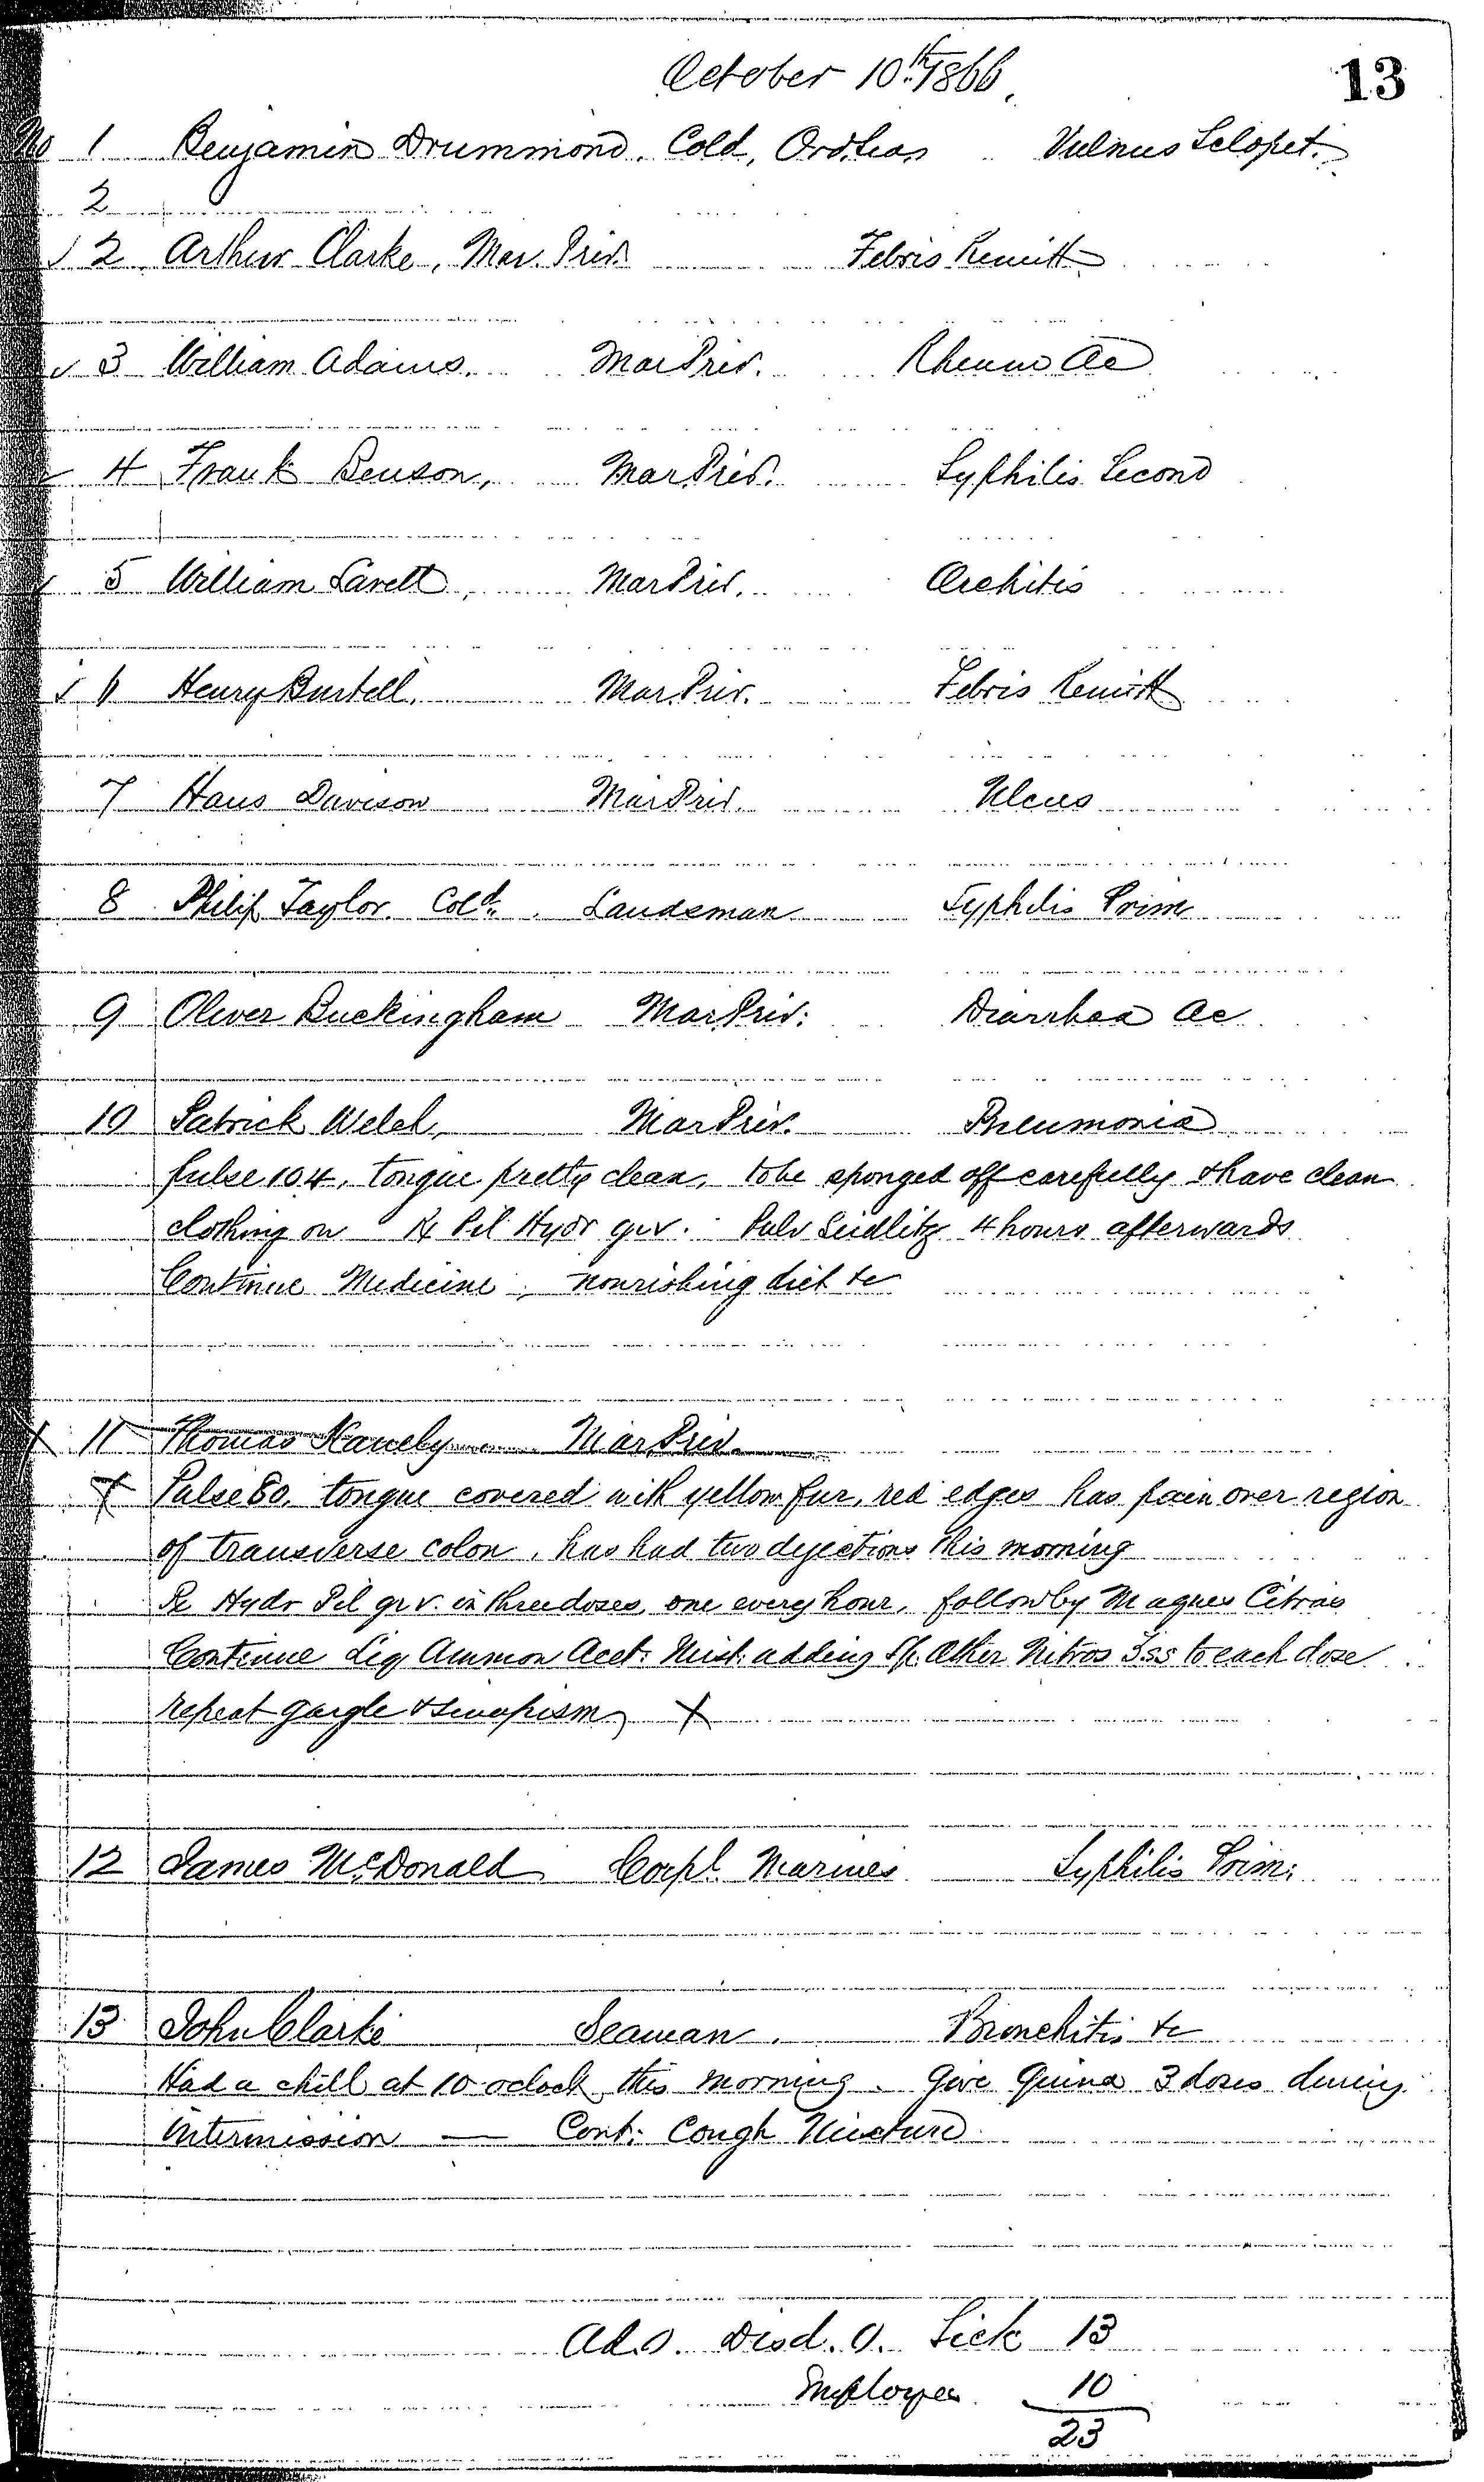 October 10th 1866.
13
No 1 Benjamin Drummond. Cold, Ord. Seas Vulnus Sclopet.
2
√ 2 Arthur Clarke, Mar. Priv. Febris Remitt
√ 3 William Adams. Mar Priv. Rheum Ac
√ 4 Frank Benson, Mar. Priv. Syphilis Second
√ 5 William Lavell, Mar Priv. Orchitis
√ 6 Henry Burtell. Mar. Priv. Febris Remitt
7 Hans Davison Mar Priv. Ulcus
8 Philip Taylor. Cold. Landsman Syphilis Prim
9 Oliver Buckingham Mar. Priv: Diarrhœa Ac
10 Patrick Welch, Mar Priv. Pneumonia
pulse 104, tongue pretty clean, to be sponged off carefully & have clean
clothing on ℞ Pil Hydr gr v. Pulv Seidlitz 4 hours afterwards
Continue Medicine, nourishing diet &c
X 11 Thomas Mar. Priv.
X Pulse 80. tongue covered with yellow fur, red edges has pain over region
of transverse colon, has had two dejections this morning
℞ Hydr Pil gr v. in three doses, one every hour, follow by Magnes Citras
Continue Liq Ammon Acet. Mist. adding Sp. Æther Nitros ʒss to each dose
repeat gargle & sinapism X
12 James McDonald Corpl. Marines Syphilis Prim:
13 John Clarke Seaman. Bronchitis &c
Had a chill at 10 oclock this morning. Give Quina 3 doses during
intermission — Cont: Cough Mixture
Ad. 0. Disd. 0. Sick 13
Employees 10
23